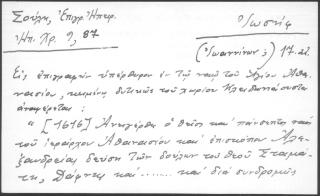 Σούλη, Ἐπιγρ. Ἠπείρ.
Ἠπ. Χρ. 9, 87
Ἰωσήφ
(Ἰωαννίνων ;) 17. αἰ.
Εἰς ἐπιγραφὴν ὑπέρθυρον ἐν τῷ ναῷ τοῦ Ἁγίου Ἀθα-
νασίου, κειμένῳ δυτικῶς τοῦ χωρίου
ἀναφέρεται :
" [1616] Ἀνηγέρθη ὁ θεῖος καὶ πάνσεπτος ναὸς
τοῦ ἱεράρχου Ἀθανασίου καὶ ἐπισκόπου Ἀλε-
ξανδρείας δεύση τῶν δούλων τοῦ Θεοῦ Σταμά-
τη, Δάφνης καὶ ....... καὶ διὰ συνδρομῆς